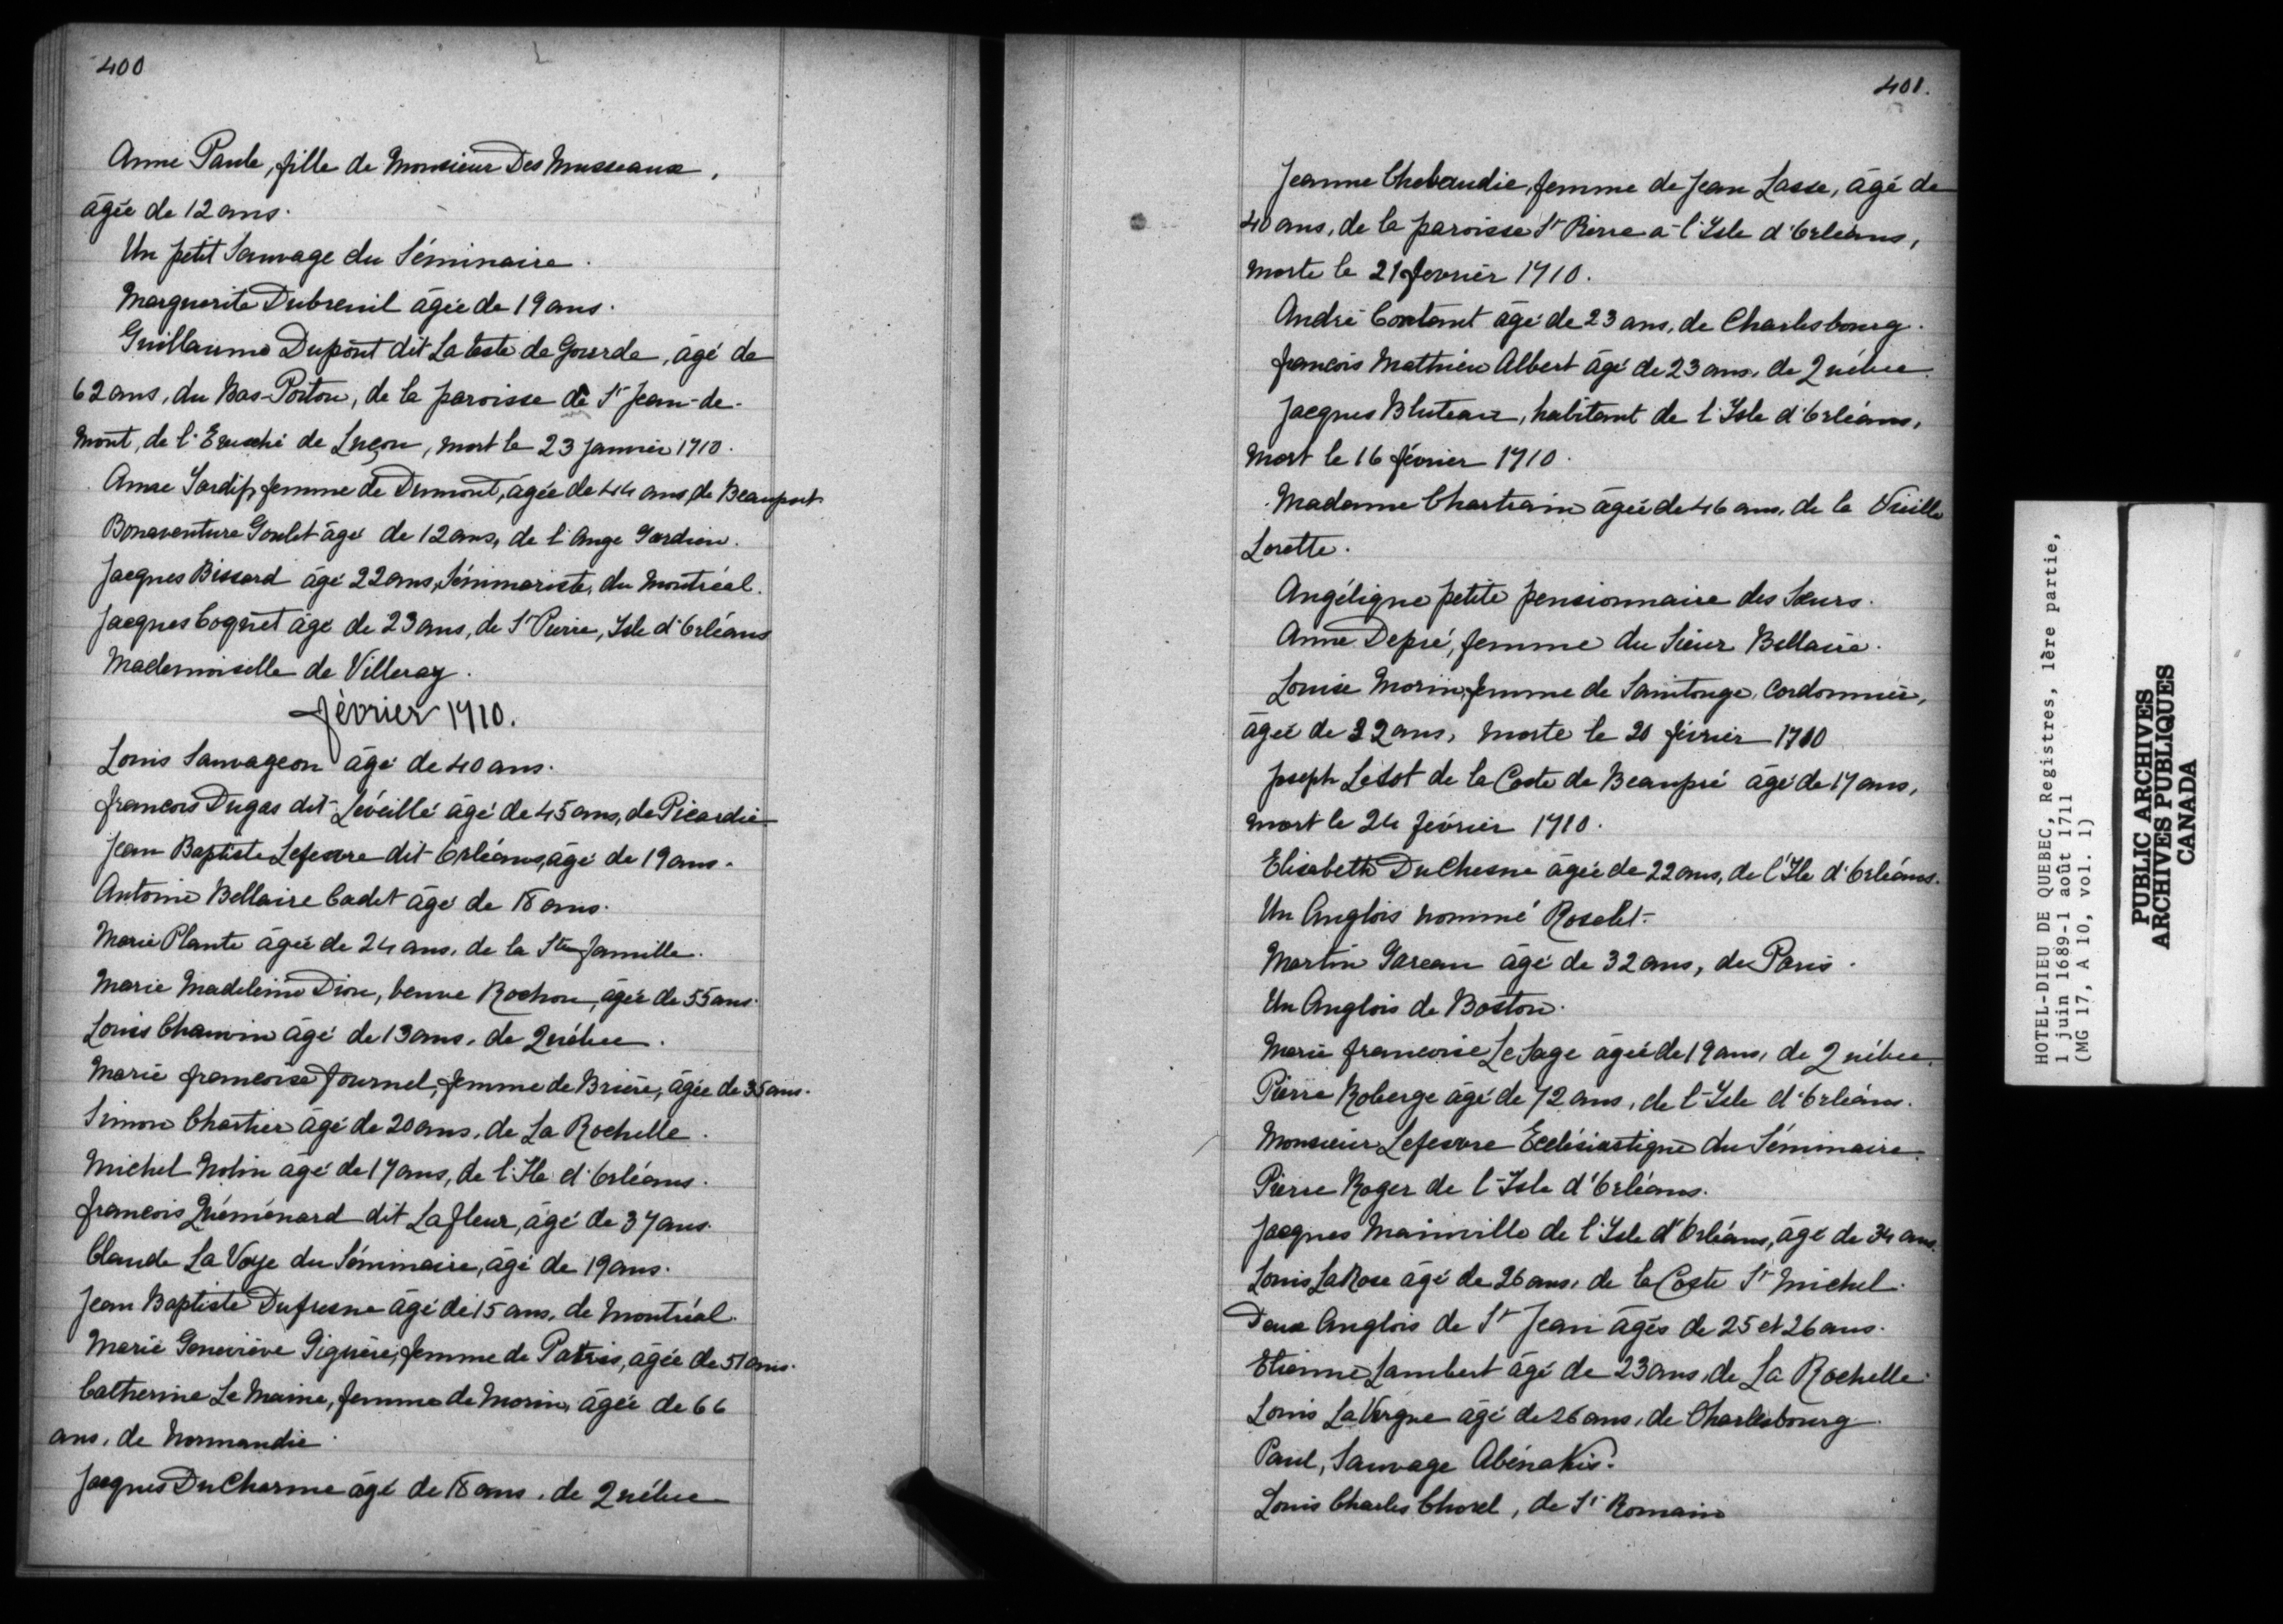 400
Anne Paule, fille de Monsieur Des Musseaux,
âgée de 12 ans.
Un petit Sauvage du Séminaire.
Marguerite Dubreuil âgée de 19 ans.
Guillaume Dupont dit La teste de Gourde, âgé de
62 ans, du Bas-Poitou, de la paroisse de St Jean-de-
Mont, de l'Evesché de Luçon, mort le 23 janvier 1710.
Anne Tardif, femme de Dumont, âgée de 44 ans, de Beauport
Bonaventure Goulet âgé de 12 ans, de l'Ange Gardien.
Jacques Bissard âgé 22 ans, Séminariste, du Montréal.
Jacques Coquet âgé de 23 ans, de St Pierre, Isle d'Orléans
Mademoiselle de Villeray.
Février 1710.
Louis Sauvageon âgé de 40 ans.
François Dugas dit Léveillé âgé de 45 ans, de Picardie
Jean Baptiste Lefesvre dit Orléans, âgé de 19 ans.
Antoine Bellaire Cadet âgé de 18 ans.
Marie Plante âgée de 24 ans, de la Ste famille.
Marie Madeleine Dion, veuve Rochon, âgée de 55 ans.
Louis Chauvin âgé de 13 ans, de Québec.
Marie francoise fournel, femme de Brière, âgée de 35 ans.
Simon Chartier âgé de 20 ans, de La Rochelle.
Michel Nolin âgé de 17 ans, de l'Ile d'Orléans.
francois Quéménard dit Lafleur, âgé de 37 ans.
Claude La Voye du Séminaire, âgé de 19 ans.
Jean Baptiste Dufresne âgé de 15 ans, de Montréal.
Marie Geneviève Giguère, femme de Patris, âgée de 51 ans.
Catherine Le Maine, femme de Morin, âgée de 66
ans, de Normandie.
Jacques DuCharme âgé de 18 ans, de Québec
401.
Jeanne Chebaudie, femme de Jean Lasse, âgé de
40 ans, de la paroisse St Pierre à l'Isle d'Orléans,
morte le 21 fevrier 1710.
André Contant âgé de 23 ans, de Charlesbourg.
francois Mathieu Albert âgé de 23 ans, de Québec.
Jacques Bluteau, habitant de l'Isle d'Orléans,
mort le 16 février 1710.
Madame Chartrain âgée de 46 ans, de la Vieille
Lorette.
Angélique petite pensionnaire des Sœurs.
Anne Depré, femme du Sieur Bellaire.
Louise Morin, femme de Saintonge, Cordonnier,
âgée de 32 ans, morte le 20 février 1710
Joseph Létot de la Coste de Beaupré âgé de 17 ans,
mort le 24 février 1710.
Elisabeth DuChesne âgée de 22 ans, de l'Ile d'Orléans.
Un Anglois nommé Roselet.
Martin Gareau âgé de 32 ans, de Paris.
Un Anglois de Boston.
Marie francoise LeSage âgée de 19 ans, de Québec.
Pierre Roberge âgé de 72 ans, de l'Isle d'Orléans.
Monsieur Lefesvre Ecclésiastique du Séminaire.
Pierre Roger de l'Isle d'Orléans.
Jacques Mainville de l'Isle d'Orléans, âgé de 34 ans.
Louis LaRose âgé de 26 ans, de la Coste St Michel.
Deux Anglois de St Jean âgés de 25 et 26 ans.
Etienne Lambert âgé de 23 ans, de La Rochelle.
Louis La Vergne âgé de 26 ans, de Charlesbourg.
Paul, Sauvage Abénakis.
Louis Charles Chorel, de St Romain
HOTEL-DIEU DE QUEBEC, Registres, 1ère partie,
1 juin 1689-1 août 1711
(MG 17, A 10, vol. 1)
PUBLIC ARCHIVES
ARCHIVES PUBLIQUES
CANADA